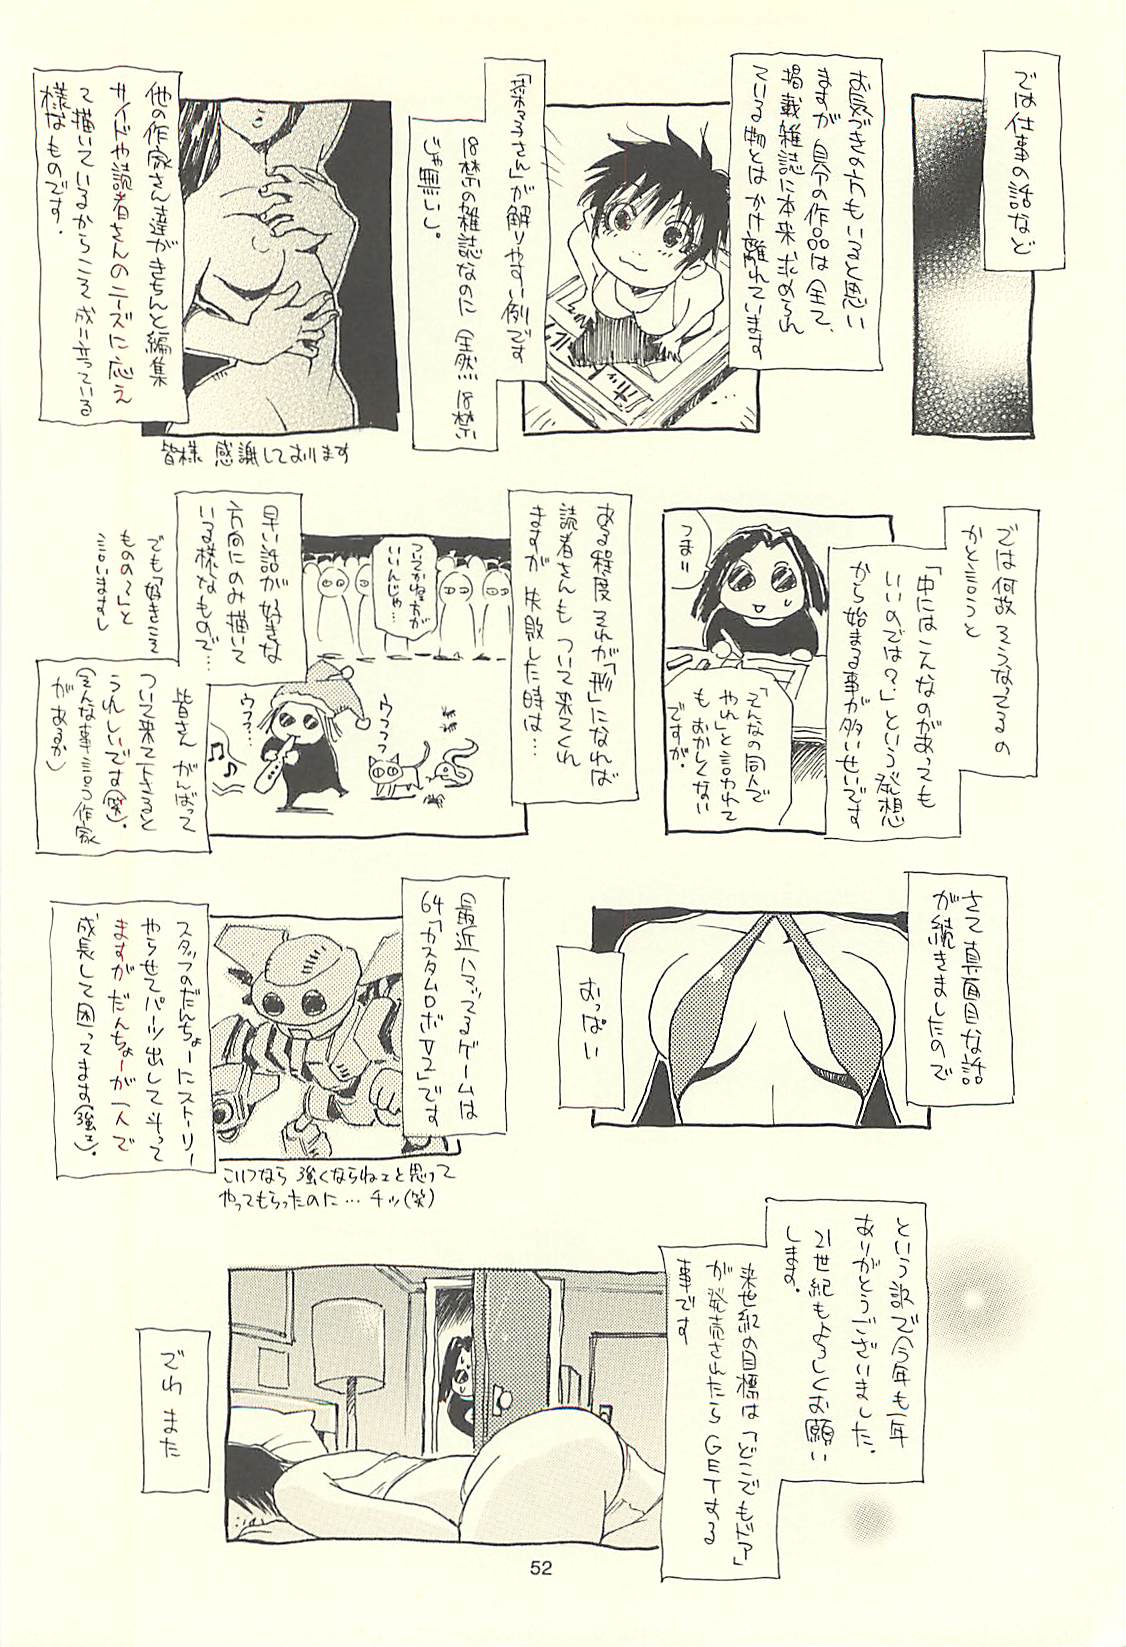 では仕事の話など
お気づきの方もいると思い
ますが 自分の作品は全て、
掲載雑誌に本来 求められ
ている物とはかけ離れています
「菜々子さん」が解りやすい例です
18禁の雑誌なのに 全然 18禁
じゃ無いし。
他の作家さん達がきちんと編集
サイドや読者さんのニーズに応え
て描いているからこそ成り立っている
様なものです.
皆様 感謝しております
では何故 そうなってるの
かと言うと
「中にはこんなのがあっても
いいのでは?」という発想
から始まる事が多いせいです
つまり
「そんなの同人で
やれ」と言われて
も おかしくない
ですが.
ある程度 それが「形」になれば
読者さんも ついて来てくれ
ますが 失敗した時は…
ついてかねぇ方が
いいんじゃ…
ウフフ…
ウフフフ
早い話が 好きな
方向にのみ描いて
いる様なもので…
でも「好きこそ
ものの〜」と
言いますし
皆さん がんばって
ついて来て下さると
うれしいです(笑).
(そんな事言う作家
があるか)
さて真面目な話
が続きましたので
おっぱい
最近ハマッてるゲームは
64「カスタムロボV2」です
スタッフのだんちょーにストーリー
やらせてパーツ出して斗って
ますが だんちょーが一人で
成長して困ってます(強ェ).
こいつなら 強くならねェと思って
やってもらったのに… チッ(笑)
という訳で今年も一年
ありがとうございました.
21世紀もよろしくお願い
します.
来世紀の目標は「どこでもドア」
が発売されたら GETする
事です
でわ また
52